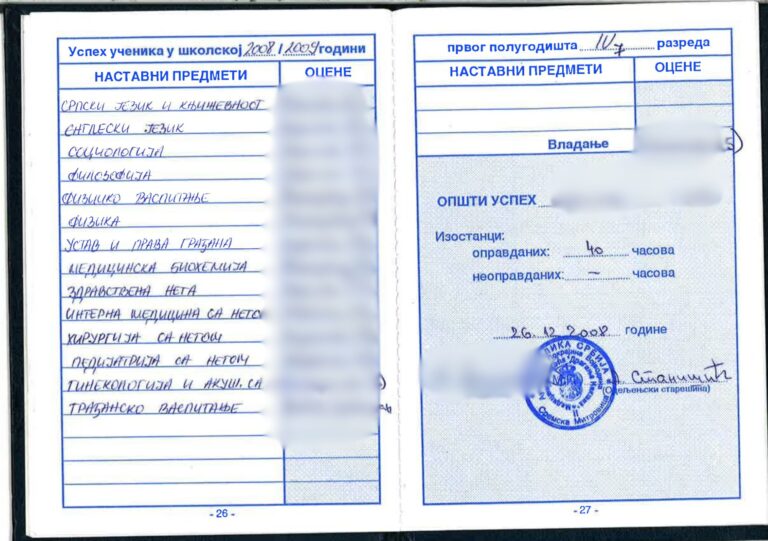 Успех ученика у школској 2008 / 2009 години
НАСТАВНИ ПРЕДМЕТИ ОЦЕНЕ
СРПСКИ ЈЕЗИК И КЊИЖЕВНОСТ
ЕНГЛЕСКИ ЈЕЗИК
СОЦИОЛОГИЈА
ФИЛОЗОФИЈА
ФИЗИЧКО ВАСПИТАЊЕ
ФИЗИКА
УСТАВ И ПРАВА ГРАЂАНА
МЕДИЦИНСКА БИОХЕМИЈА
ЗДРАВСТВЕНА НЕГА
ИНТЕРНА МЕДИЦИНА СА НЕГОМ
ХИРУРГИЈА СА НЕГОМ
ПЕДИЈАТРИЈА СА НЕГОМ
ГИНЕКОЛОГИЈА И АКУШ. СА
ГРАЂАНСКО ВАСПИТАЊЕ
- 26 -
првог полугодишта IV7 разреда
НАСТАВНИ ПРЕДМЕТИ ОЦЕНЕ
Владање 5)
ОПШТИ УСПЕХ
Изостанци:
оправданих: 40 часова
неоправданих: — часова
26.12.2008 године
Станишић
(Одељењски старешина)
Сремска Митровица
- 27 -